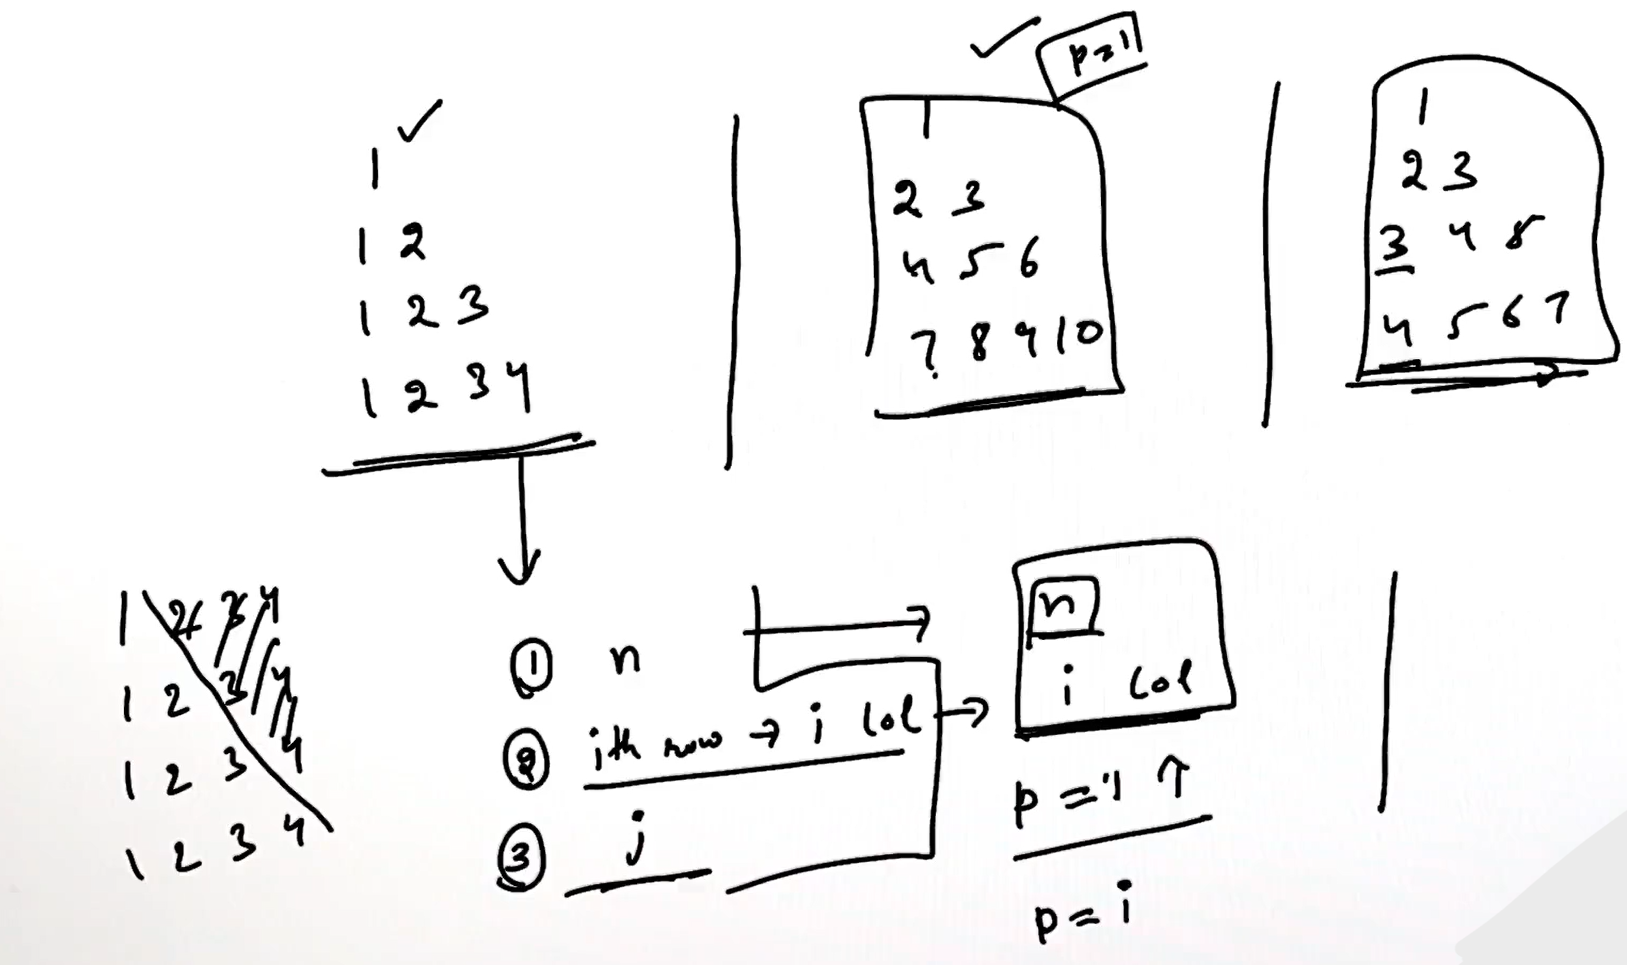 1
1 2
1 2 3
1 2 3 4
p=1
1
2 3
4 5 6
7 8 9 10
1
2 3
3 4 5
4 5 6 7
1 2 3 4
1 2 3 4
1 2 3 4
1 2 3 4
① n
② ith row → i col
③ j
n
i col
p = 1 ↑
p = i